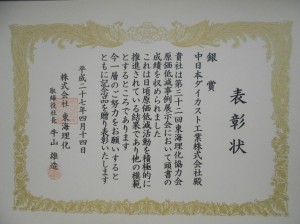 表彰状
銀賞
中日本ダイカスト工業株式会社殿
貴社は第三十二回東海理化協力会
原価低減事例展示会において頭書の
成績を収められました
これは日頃原価低減活動を積極的に
推進されている結果であり他の模範
とするところであります
今一層のご努力をお願いすると
ともに記念品を贈り表彰いたします
平成二十七年四月十四日
株式会社 東海理化
取締役社長 牛山雄造